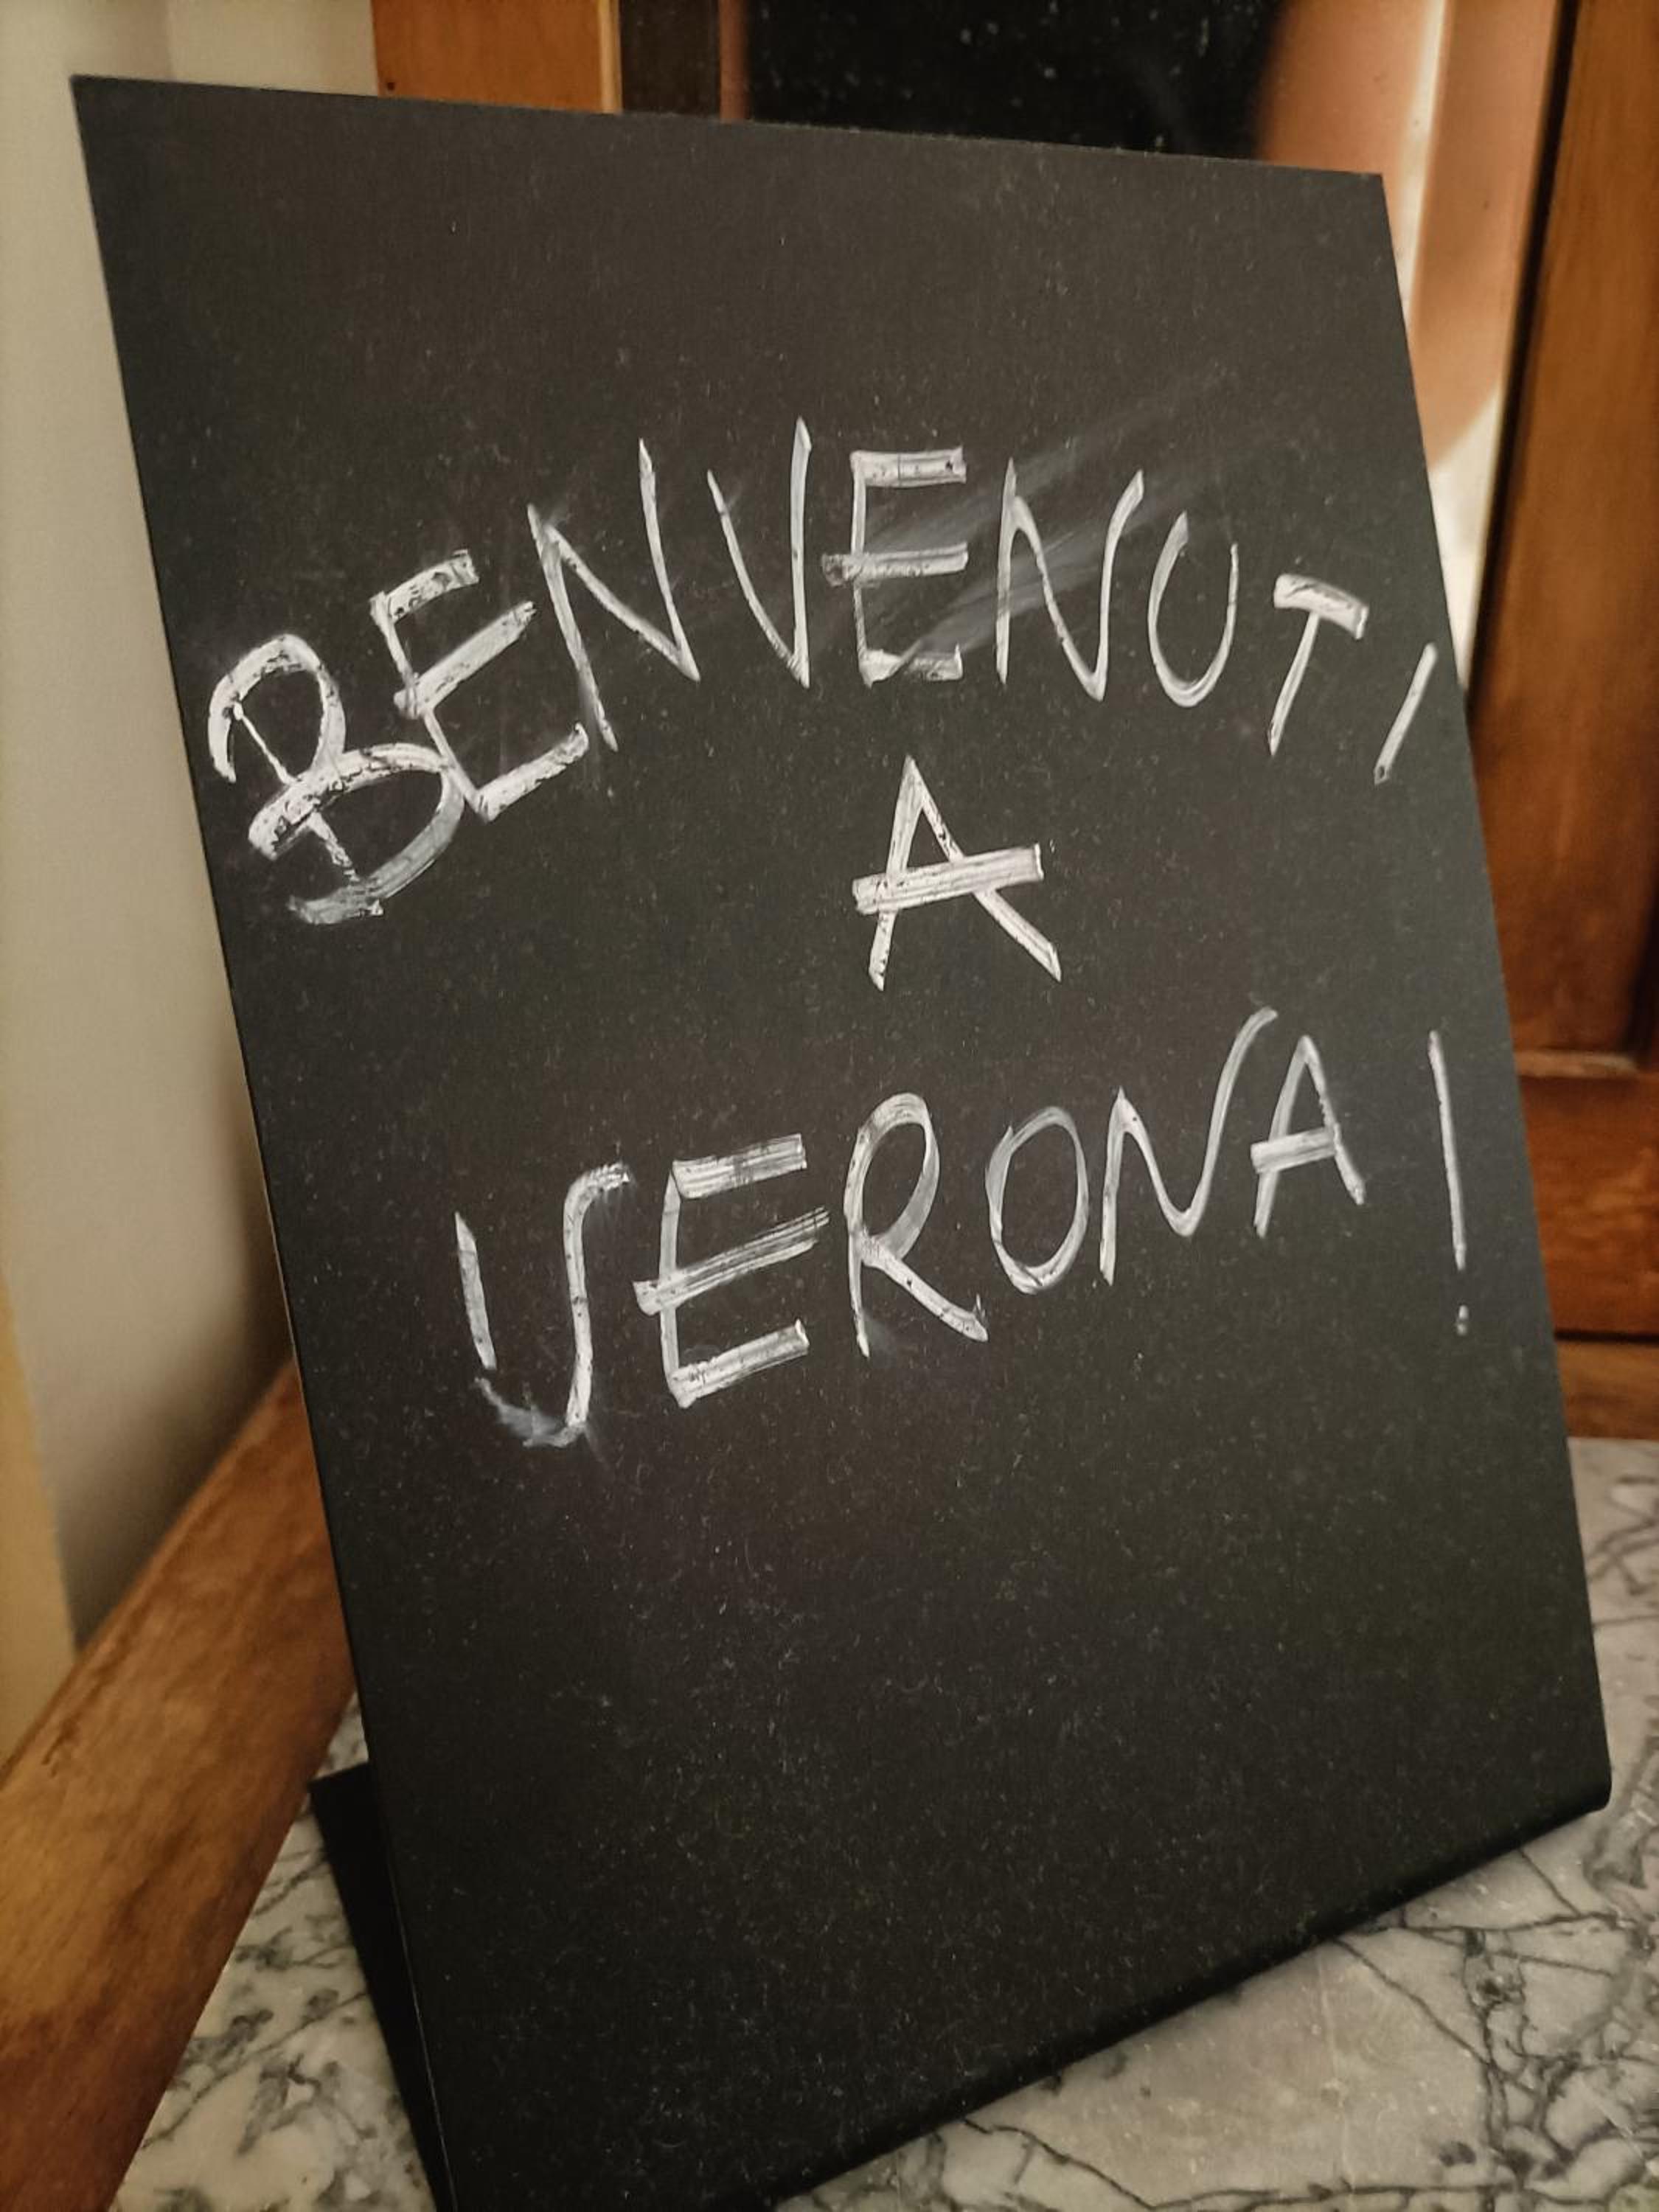 BENVENUTI
A
VERONA!